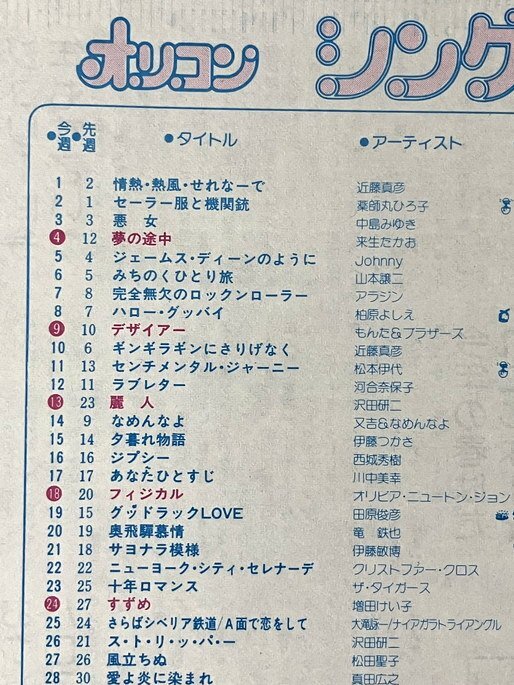 オリコン シング
●今週 ●先週 ●タイトル ●アーティスト
1 2 情熱・熱風・せれなーで 近藤真彦
2 1 セーラー服と機関銃 薬師丸ひろ子
3 3 悪 女 中島みゆき
4 12 夢の途中 来生たかお
5 4 ジェームス・ディーンのように Johnny
6 5 みちのくひとり旅 山本譲二
7 8 完全無欠のロックンローラー アラジン
8 7 ハロー・グッバイ 柏原よしえ
9 10 デザイアー もんた&ブラザーズ
10 6 ギンギラギンにさりげなく 近藤真彦
11 13 センチメンタル・ジャーニー 松本伊代
12 11 ラブレター 河合奈保子
13 23 麗 人 沢田研二
14 9 なめんなよ 又吉&なめんなよ
15 14 夕暮れ物語 伊藤つかさ
16 16 ジプシー 西城秀樹
17 17 あなたひとすじ 川中美幸
18 20 フィジカル オリビア・ニュートン・ジョン
19 15 グッドラックLOVE 田原俊彦
20 19 奥飛騨慕情 竜 鉄也
21 18 サヨナラ模様 伊藤敏博
22 22 ニューヨーク・シティ・セレナーデ クリストファー・クロス
23 25 十年ロマンス ザ・タイガース
24 27 すずめ 増田けい子
25 24 さらばシベリア鉄道/A面で恋をして 大滝詠一/ナイアガラトライアングル
26 21 ス・ト・リ・ッ・パ・ー 沢田研二
27 26 風立ちぬ 松田聖子
28 30 愛よ炎に染まれ 真田広之